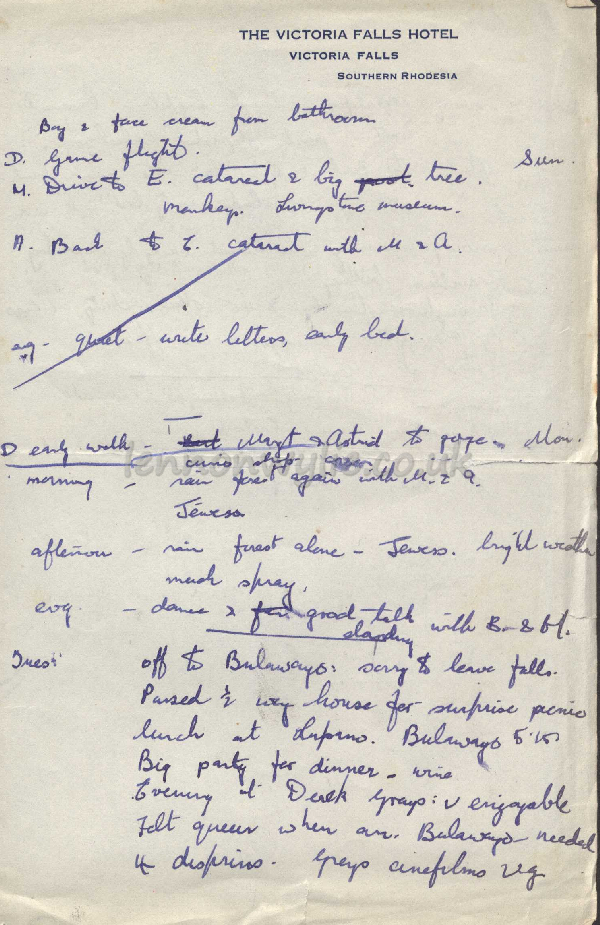 THE VICTORIA FALLS HOTEL
VICTORIA FALLS
SOUTHERN RHODESIA
Bag & face cream from bathroom
D. Game flight. Sun.
M. Drive to E. cataract & big tree.
monkeys. Livingstone museum.
A. Back to E. cataract with M & A.
evg - quiet - write letters, early bed.
D early walk - Mgt & Astrid to gorge - Mon.
curio shop
morning - rain forest again with M. & A.
afternoon - rain forest alone - bright weather
much spray.
evg. - dance & good talk with B. & M.
Tues: off to Bulawayo: sorry to leave falls.
Passed ½ way house for surprise picnic
lunch at Lupano. Bulawayo 5.15
Big party for dinner - wine
Evening at Derek Grays: v enjoyable
Felt queer when arr. Bulawayo - needed
4 disprins. Grays cinefilms v.g
lennonwylie.co.uk